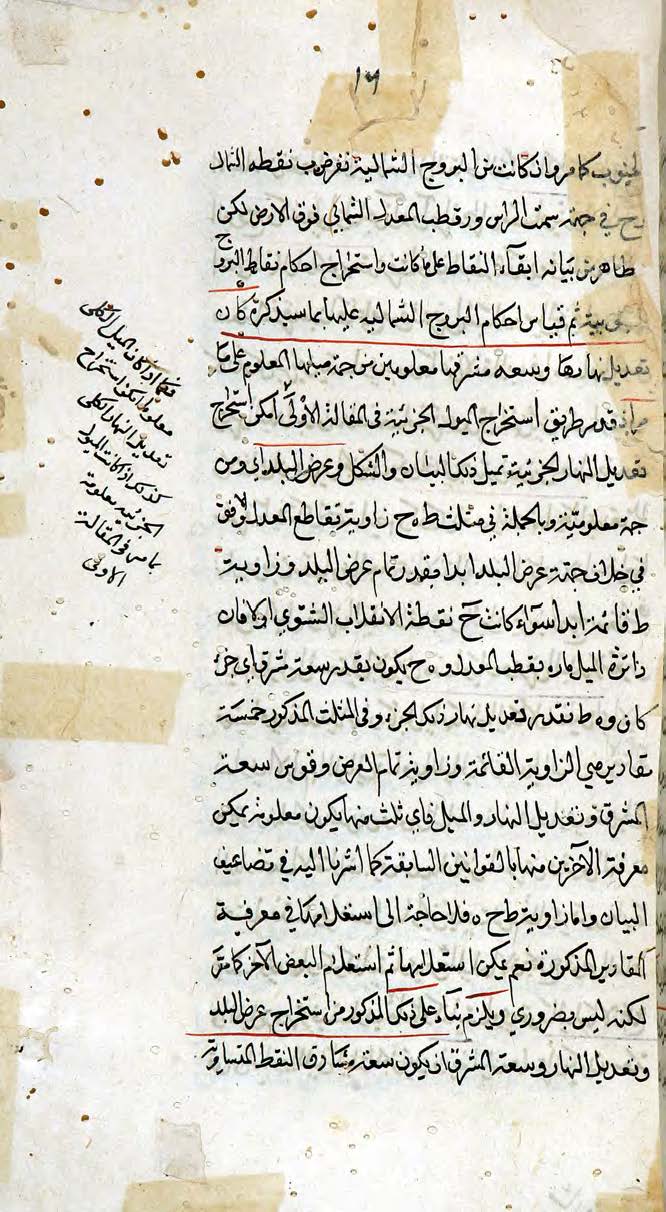 ١٦
الجنوب كما مر وان كانت من البروج الشمالية نفرض ب نقطه الشمال
ح في جهة سمت الراس ور قطب المعدل الشمالي فوق الارض لكن
ظاهر من بيانه ابقآء النقاط على ما كانت واستخراج احكام نقاط البروج
الجنوبية ثم قياس احكام البروج الشماليه عليها بما سيذكره كان
تعديل نهارها وسعه مشرقها معلومين من جهة ميلها المعلوم على ما
مر اذ قد مر طريق استخراج الميول الجزئية في المقالة الاولى امكن استخراج
تعديل النهار الجزئية بمثل ذلك البيان والشكل وعرض البلد اي ومن
جهة معلوميته وبالجملة في مثلث ط ه ح زاوية تقاطع المعدل والافق
في خلاف جهة عرض البلد ابدا بقدر تمام عرض البلد وزاوية
ط قائمة ابدا سوآء كانت ح نقطة الانقلاب الشتوي او لا فان
دائرة الميل ماره بقطب المعدل و ه ح يكون بقدر سعة مشرق اي جزء
كان و ه ط بقدر تعديل نهار ذلك الجزء وفي المثلث المذكور خمسة
مقادير هي الزاوية القائمة وزاوية تمام العرض وقوس سعة
المشرق وتعديل النهار والميل فاي ثلث منها يكون معلومة يمكن
معرفة الآخرين منها بالقوانين السابقة كما اشرنا اليه في تضاعيف
البيان واما زاوية ط ح ه فلا حاجة الى استعلامها في معرفة
المقادير المذكورة نعم يمكن استعلامها ثم استعلام البعض الآخر كما مر
لكنه ليس بضروري ويلزم بنآء على ذلك المذكور من استخراج عرض البلد
وتعديل النهار وسعة المشرق ان يكون سعة مشارق النقط المتساوية
فكما اذا كان الميل الكلى
معلوما امكن استخراج
تعديل النهار الكلى
كذلك اذ كانت الميول
الجزئيه معلومة
بما مر في المقالة
الاولى